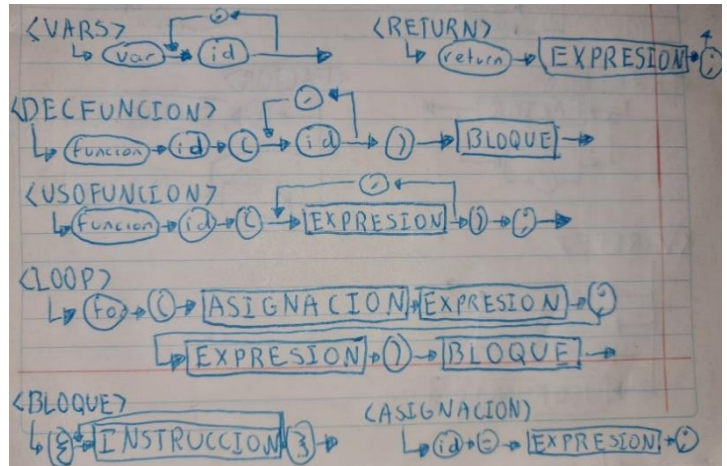 <VARS>
var id ,
<RETURN>
return EXPRESION ;
<DECFUNCION>
funcion id ( id , ) BLOQUE
<USOFUNCION>
funcion id ( EXPRESION , ) ;
<LOOP>
for ( ASIGNACION EXPRESION ;
EXPRESION ) BLOQUE
<BLOQUE>
{ INSTRUCCION }
<ASIGNACION>
id = EXPRESION ;